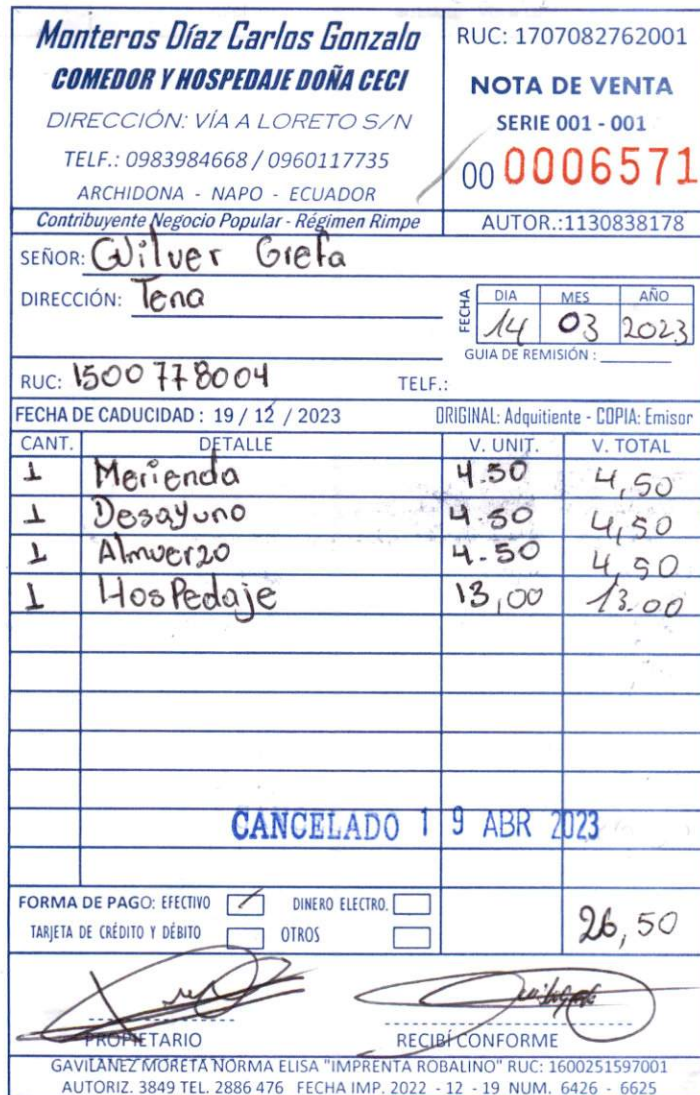 Monteros Díaz Carlos Gonzalo
COMEDOR Y HOSPEDAJE DOÑA CECI
DIRECCIÓN: VÍA A LORETO S/N
TELF.: 0983984668 / 0960117735
ARCHIDONA - NAPO - ECUADOR
Contribuyente Negocio Popular - Régimen Rimpe
RUC: 1707082762001
NOTA DE VENTA
SERIE 001 - 001
00 0006571
AUTOR.:1130838178
SEÑOR: Wilver Grefa
DIRECCIÓN: Tena
FECHA DIA MES AÑO
14 03 2023
GUIA DE REMISIÓN :
RUC: 1500778004 TELF.:
FECHA DE CADUCIDAD : 19 / 12 / 2023 ORIGINAL: Adquitiente - COPIA: Emisor
CANT. DETALLE V. UNIT. V. TOTAL
1 Merienda 4.50 4,50
1 Desayuno 4.50 4,50
1 Almuerzo 4.50 4,50
1 HosPedaje 13,00 13.00
CANCELADO 19 ABR 2023
FORMA DE PAGO: EFECTIVO DINERO ELECTRO.
TARJETA DE CRÉDITO Y DÉBITO OTROS
26,50
PROPIETARIO RECIBÍ CONFORME
GAVILANEZ MORETA NORMA ELISA "IMPRENTA ROBALINO" RUC: 1600251597001
AUTORIZ. 3849 TEL. 2886 476 FECHA IMP. 2022 - 12 - 19 NUM. 6426 - 6625